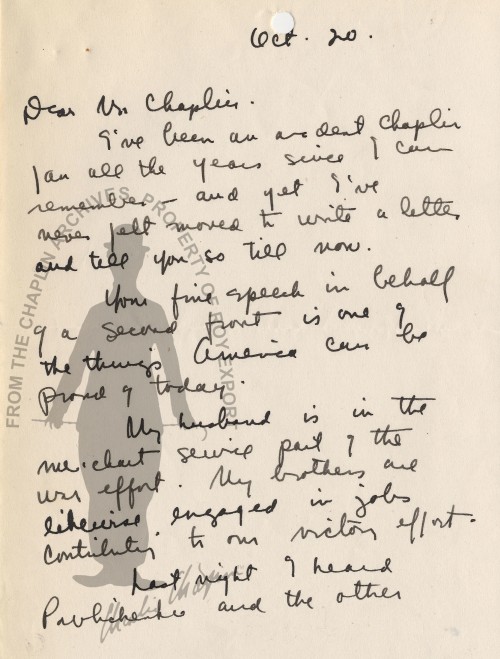 Oct. 20.
Dear Mr Chaplin.
I've been an ardent Chaplin
fan all the years since I can
remember - and yet I've
never felt moved to write a letter
and tell you so till now.
Your fine speech in behalf
of a second front is one of
the things America can be
proud of today.
My husband is in the
merchant service part of the
war effort. My brothers are
likewise engaged in jobs
contributing to our victory effort.
Last night I heard
Pavlichenko and the other
FROM THE CHAPLIN ARCHIVES. PROPERTY OF ROY EXPOR
Charlie Chaplin